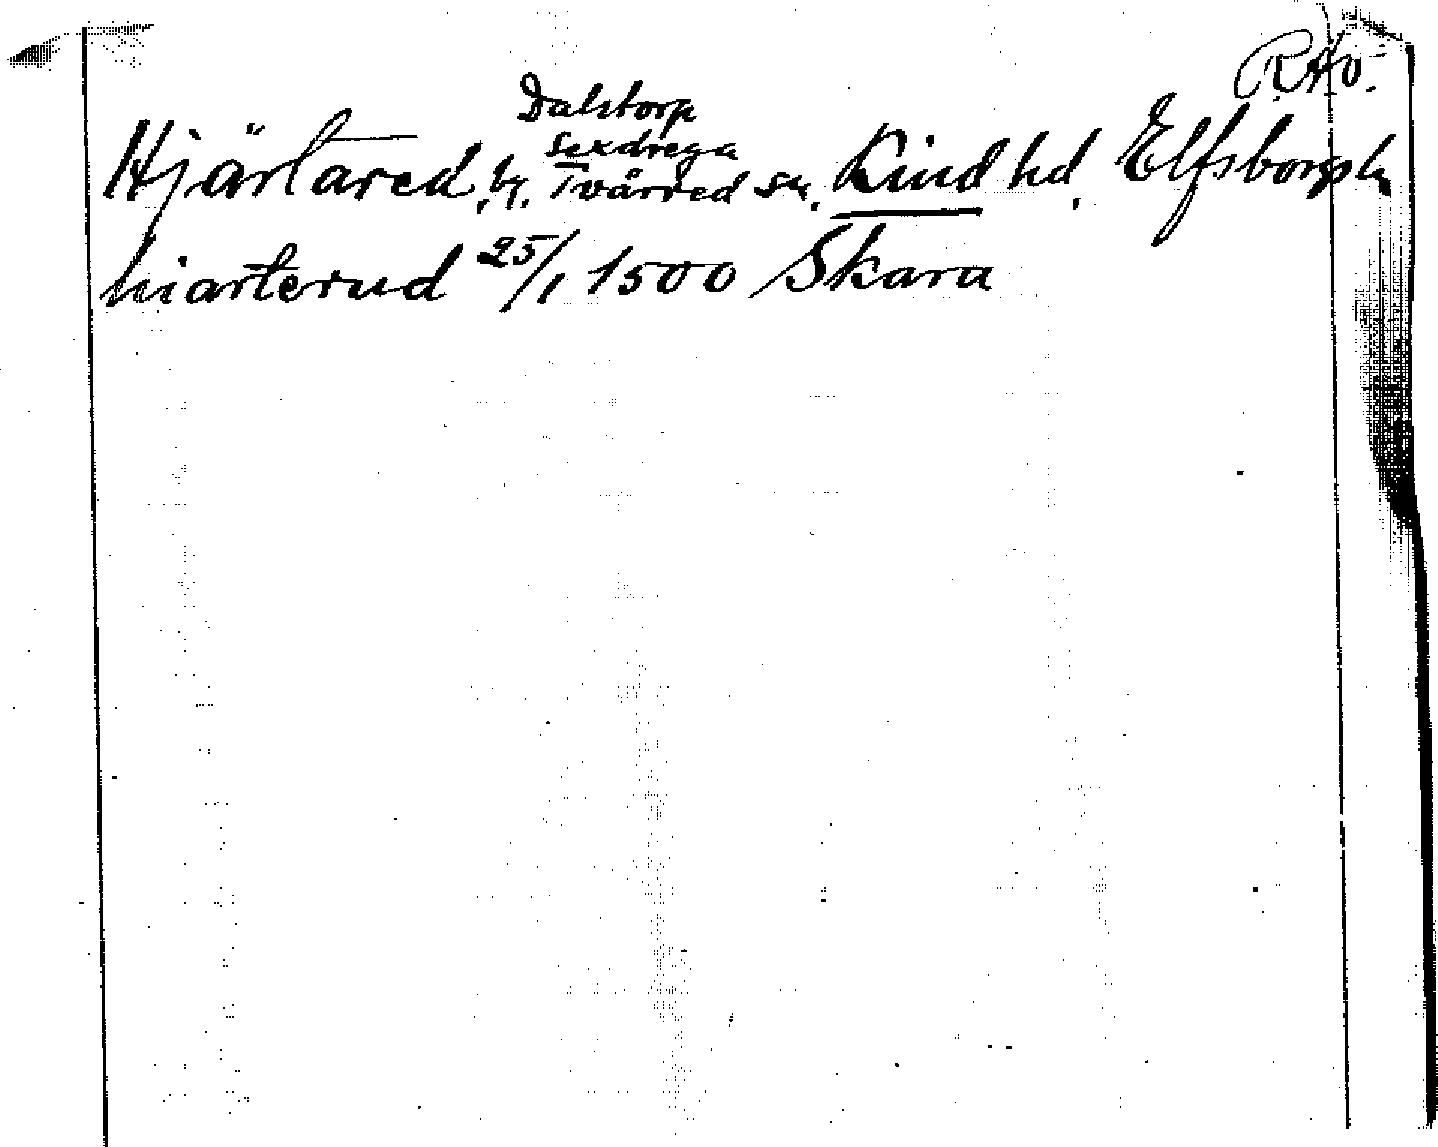 RAO.
Dalstorp
Sexdrega
Hjärtared, by, Tvärred sn. Kind hd, Elfsborgs ln
hiarterud 25/1 1500 Skara